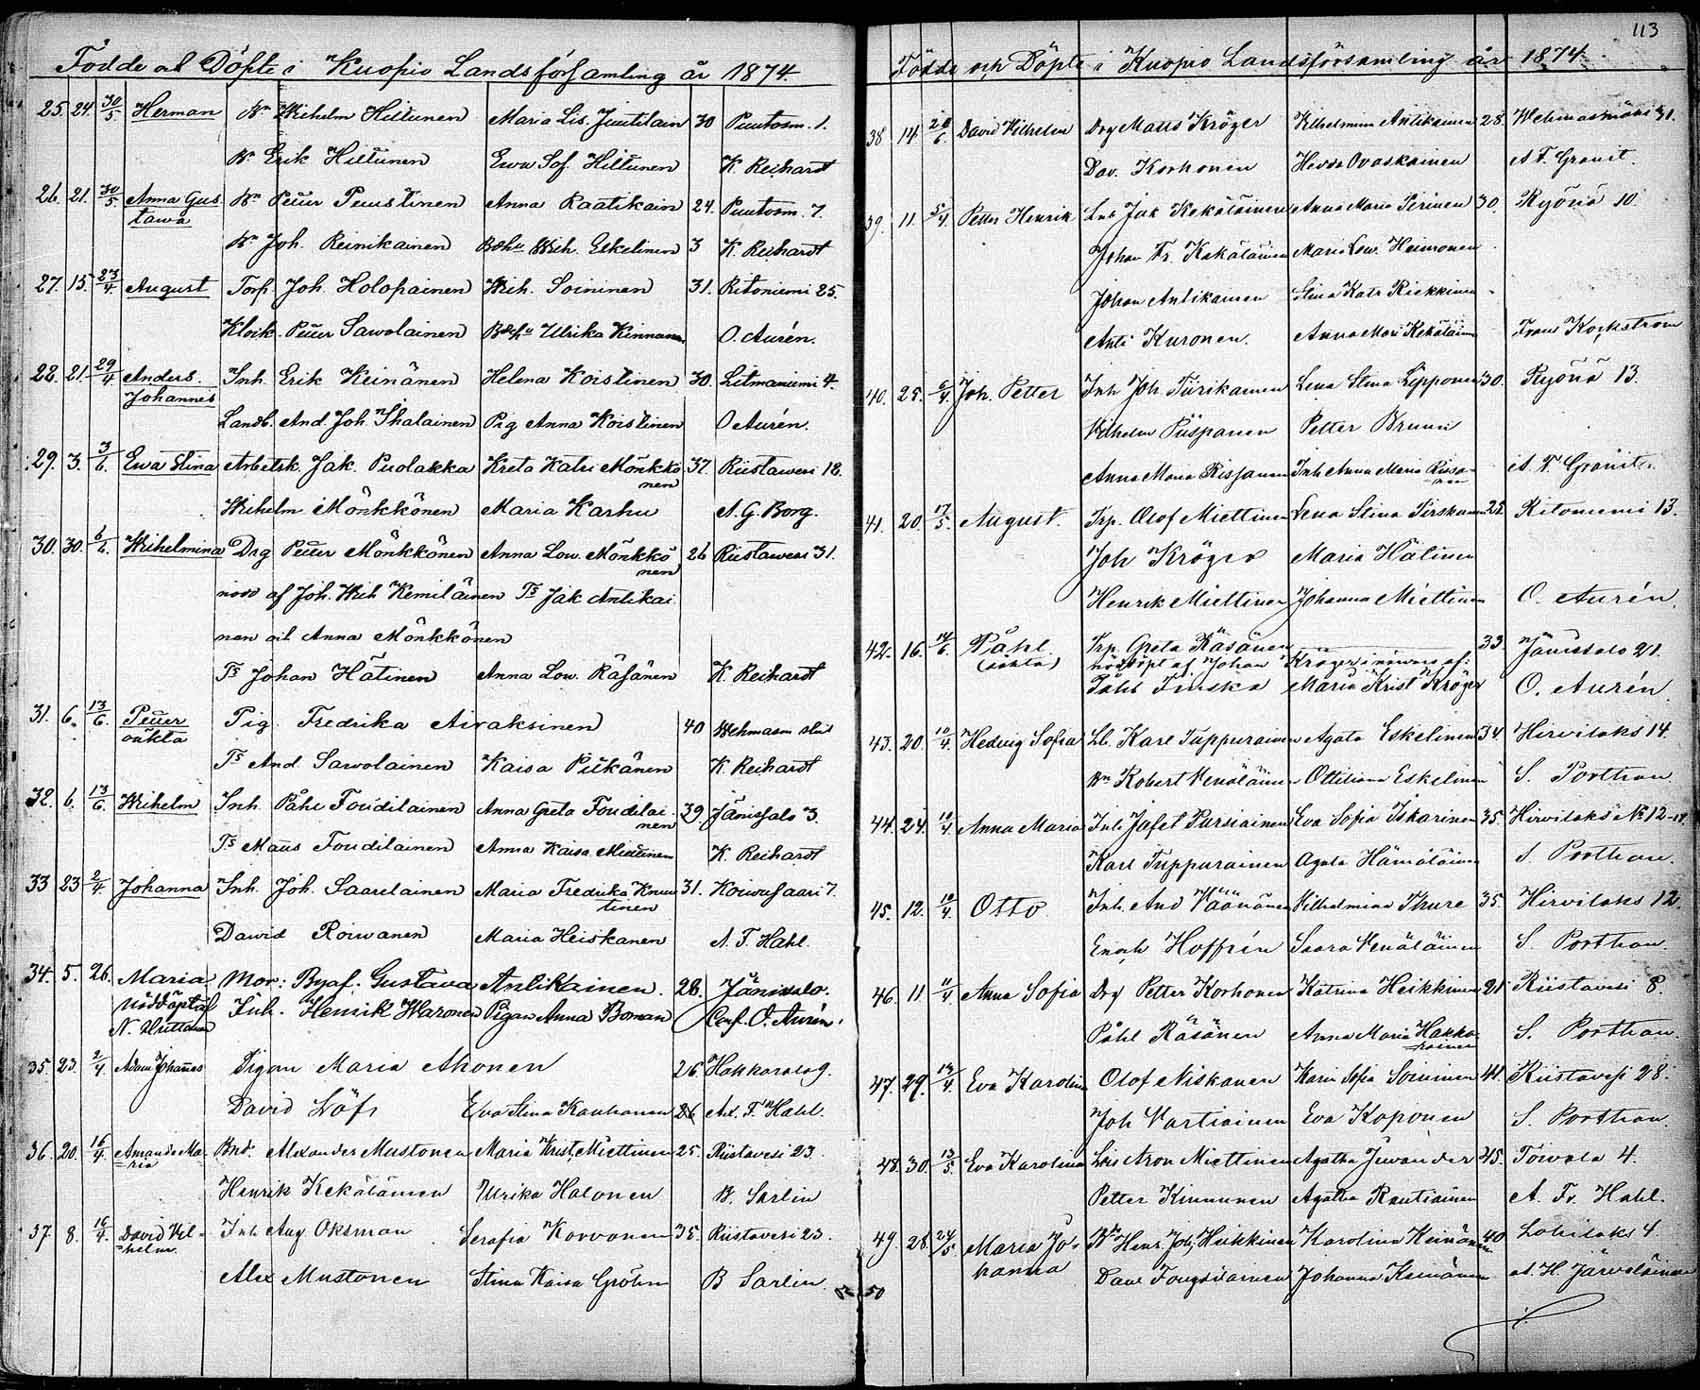 Födde och Döpte i Kuopio Landsförsamling år 1874.
25. 24. 30/5 Herman Bn Wilhelm Hiltunen Maria Lis. Juutilain 30 Puutosm. 1.
Bn Erik Hiltunen Ewa Sof. Hiltunen K. Reihardt
26. 21. 30/5 Anna Gus Bn Petter Puustinen Anna Raatikain 24. Puutosm. 7.
tawa
Bn Joh. Reinikainen Wilh. Eskelinen 3 K. Reihardt
27. 15. 23/4 August Torp. Joh. Holopainen Wilh. Soininen 31. Ritoniemi 25.
Petter Sawolainen Ulrika Kinnunen O. Aurén.
28. 21. 29/4 Anders Inh. Erik Keinänen Helena Koistinen 30. Litmaniemi 4.
Johannes
Landb. And. Joh. Ihalainen Pig Anna Koistinen O Aurén.
29. 3. 3/6. Ewa Stina Arbetsk. Jak. Puolakka Kreta Katri Mönkkö 37. Riistawesi 18.
nen
Wilhelm Mönkkönen Maria Karhu A. G. Borg.
30. 30. 6/6. Wilhelmina Drg Petter Mönkkönen Anna Low. Mönkkö 26 Riistawesi 31.
nen
nöd af Joh. Wilh Kemiläinen Ts Jak Antikai
nen och Anna Mönkkönen
Ts Johan Hätinen Anna Low. Räsänen K. Reihardt
31. 6. 13/6. Petter Pig. Fredrika Airaksinen 40 Wehmasm
oäkta
Ts And. Sawolainen Kaisa Pitkänen K. Reihardt
32. 6. 13/6. Wilhelm Inh. Påhl Toudilainen Anna Greta Toudilai 29. Jänissalo 3.
nen
Ts Mats Toudilainen Anna Kaisa Miettinen K. Reihardt
33 23 2/4 Johanna Inh. Joh. Saarelainen Maria Fredrika Knuu 31. Koiwusaari 7.
tinen
Dawid Roiwanen Maria Heiskanen A. F. Hahl.
34. 5. 26. Maria Mor: Gustawa Antikainen. 28. Jänissalo.
nöddöpt af Inh. Henrik Waronen Pigan Anna Boman Conf. O. Aurén.
N. Huttunen
35. 23. 2/4 Adam Johannes Pigan Maria Ahonen 26. Hakkarala 9.
David Löf Eva Stina Kauhanen 26 Ax. F. Hahl.
36. 20. 16/4. Amanda Ma- Bnd. Alexander Mustonen Maria Krist. Miettinen 25. Riistavesi 23.
ria
Henrik Kekäläinen Ulrika Halonen B. Sarlin
37. 8. 16/4. David Vil- Inh Aug Oksman Serafia Korvonen 35. Riistavesi 23.
helm
Alex Mustonen Stina Kaisa Gröhn B Sarlin.
113
Födde och Döpte i Kuopio Landsförsamling år 1874.
38 14 20/6. David Vilhelm Drg Mats Kröger Vilhelmina Antikainen 28. Wehmasmäki 31.
Dav. Korhonen Hedda Ovaskainen A. F. Granit.
39. 11. 5/4. Petter Henrik Inh Jak Kekäläinen Anna Maria Pirinen 30. Ryönä 10
Johan Fr. Kekäläinen Maria Lov. Heimonen
Johan Antikainen Stina Katr Riekkinen
Anti Kuronen. Anna Mari Kekäläinen Frans Kockström
40. 25. 6/4. Joh. Petter Inh Joh Tiirikainen Lena Stina Lipponen 30. Ryönä 13.
Vilhelm Piispanen Petter Bruun
Anna Maria Rissanen Inh Anna Maria Rissa-
nen A. F. Granit.
41. 20. 17/5. August. Trp. Olof Miettinen Lena Stina Pirskanen 22. Ritoniemi 13.
Joh Kröger Maria Hätinen
Henrik Miettinen Johanna Miettinen O. Aurén.
42. 16. 14/6. Påhl Trp. Greta Räsänen 33. Jänissalo 21.
(oäkta) nöddöpt af Johan Kröger i närvaro af:
Påhl Finska Maria Krist Kröger O. Aurén
43. 20. 10/4. Hedvig Sofia Lb. Karl Tuppurainen Agata Eskelinen 34. Hirvilaks 14.
Bn Robert Venäläinen Ottiliana Eskelinen S. Porthan
44. 24. 10/4 Anna Maria Inh Jafet Parsiainen Eva Sofia Iskarinen 35. Hirvilaks № 12
Karl Tuppurainen Agata Hämäläinen S. Porthan.
45. 12. 10/4. Otto Inh. And Väänänen Vilhelmina Thure 35. Hirvilaks 12.
Enoch Hoffrén Saara Venäläinen S. Porthan.
46. 11. 11/4 Anna Sofia Drg Petter Korhonen Katrina Heikkinen 21 Riistavesi 8.
Påhl Räsänen Anna Maria Hakka-
rainen S. Porthan.
47. 29. 12/4 Eva Karolina Olof Niskanen Karin Sofia Soininen 41. Riistavesi 28.
Joh Vartiainen Eva Koponen S. Porthan.
48. 30. 13/5. Eva Karolina Aron Miettinen Agatha Juvander 45. Toivala 4.
Petter Kinnunen Agatha Rautiainen A. Fr. Hahl.
49. 28. 24/5 Maria Jo- Bn Henr. Joh. Heikkinen Karolina Keinänen 40 Lohilaks 4.
hanna Johanna Keinänen A. H. Järveläinen
50